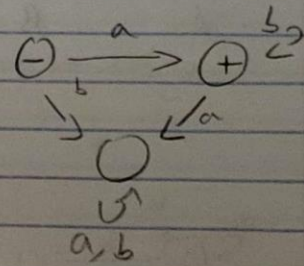 a b
- +
b a
a, b